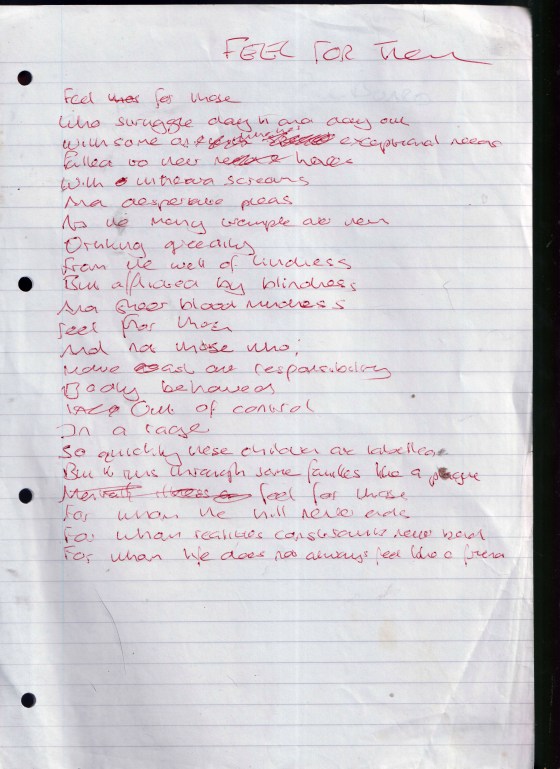 FEEL FOR Them
Feel for those
Who struggle day in and day out
With some exceptional needs
Failed to hear heroes
With internal screams
And desperate pleas
As he many trample over them
Drinking greedily
From the well of kindness
But afflicted by blindness
And sheer blood mindness
Feel For them
And not those who;
Have cast out responsibility
Badly behaved
Out of control
In a rage
So quickly these children are labelled
But it runs through some families like a plague
Mental illness feel for those
For whom the hill never ends
For whom realities constraints never bend
For whom life does not always feel like a friend